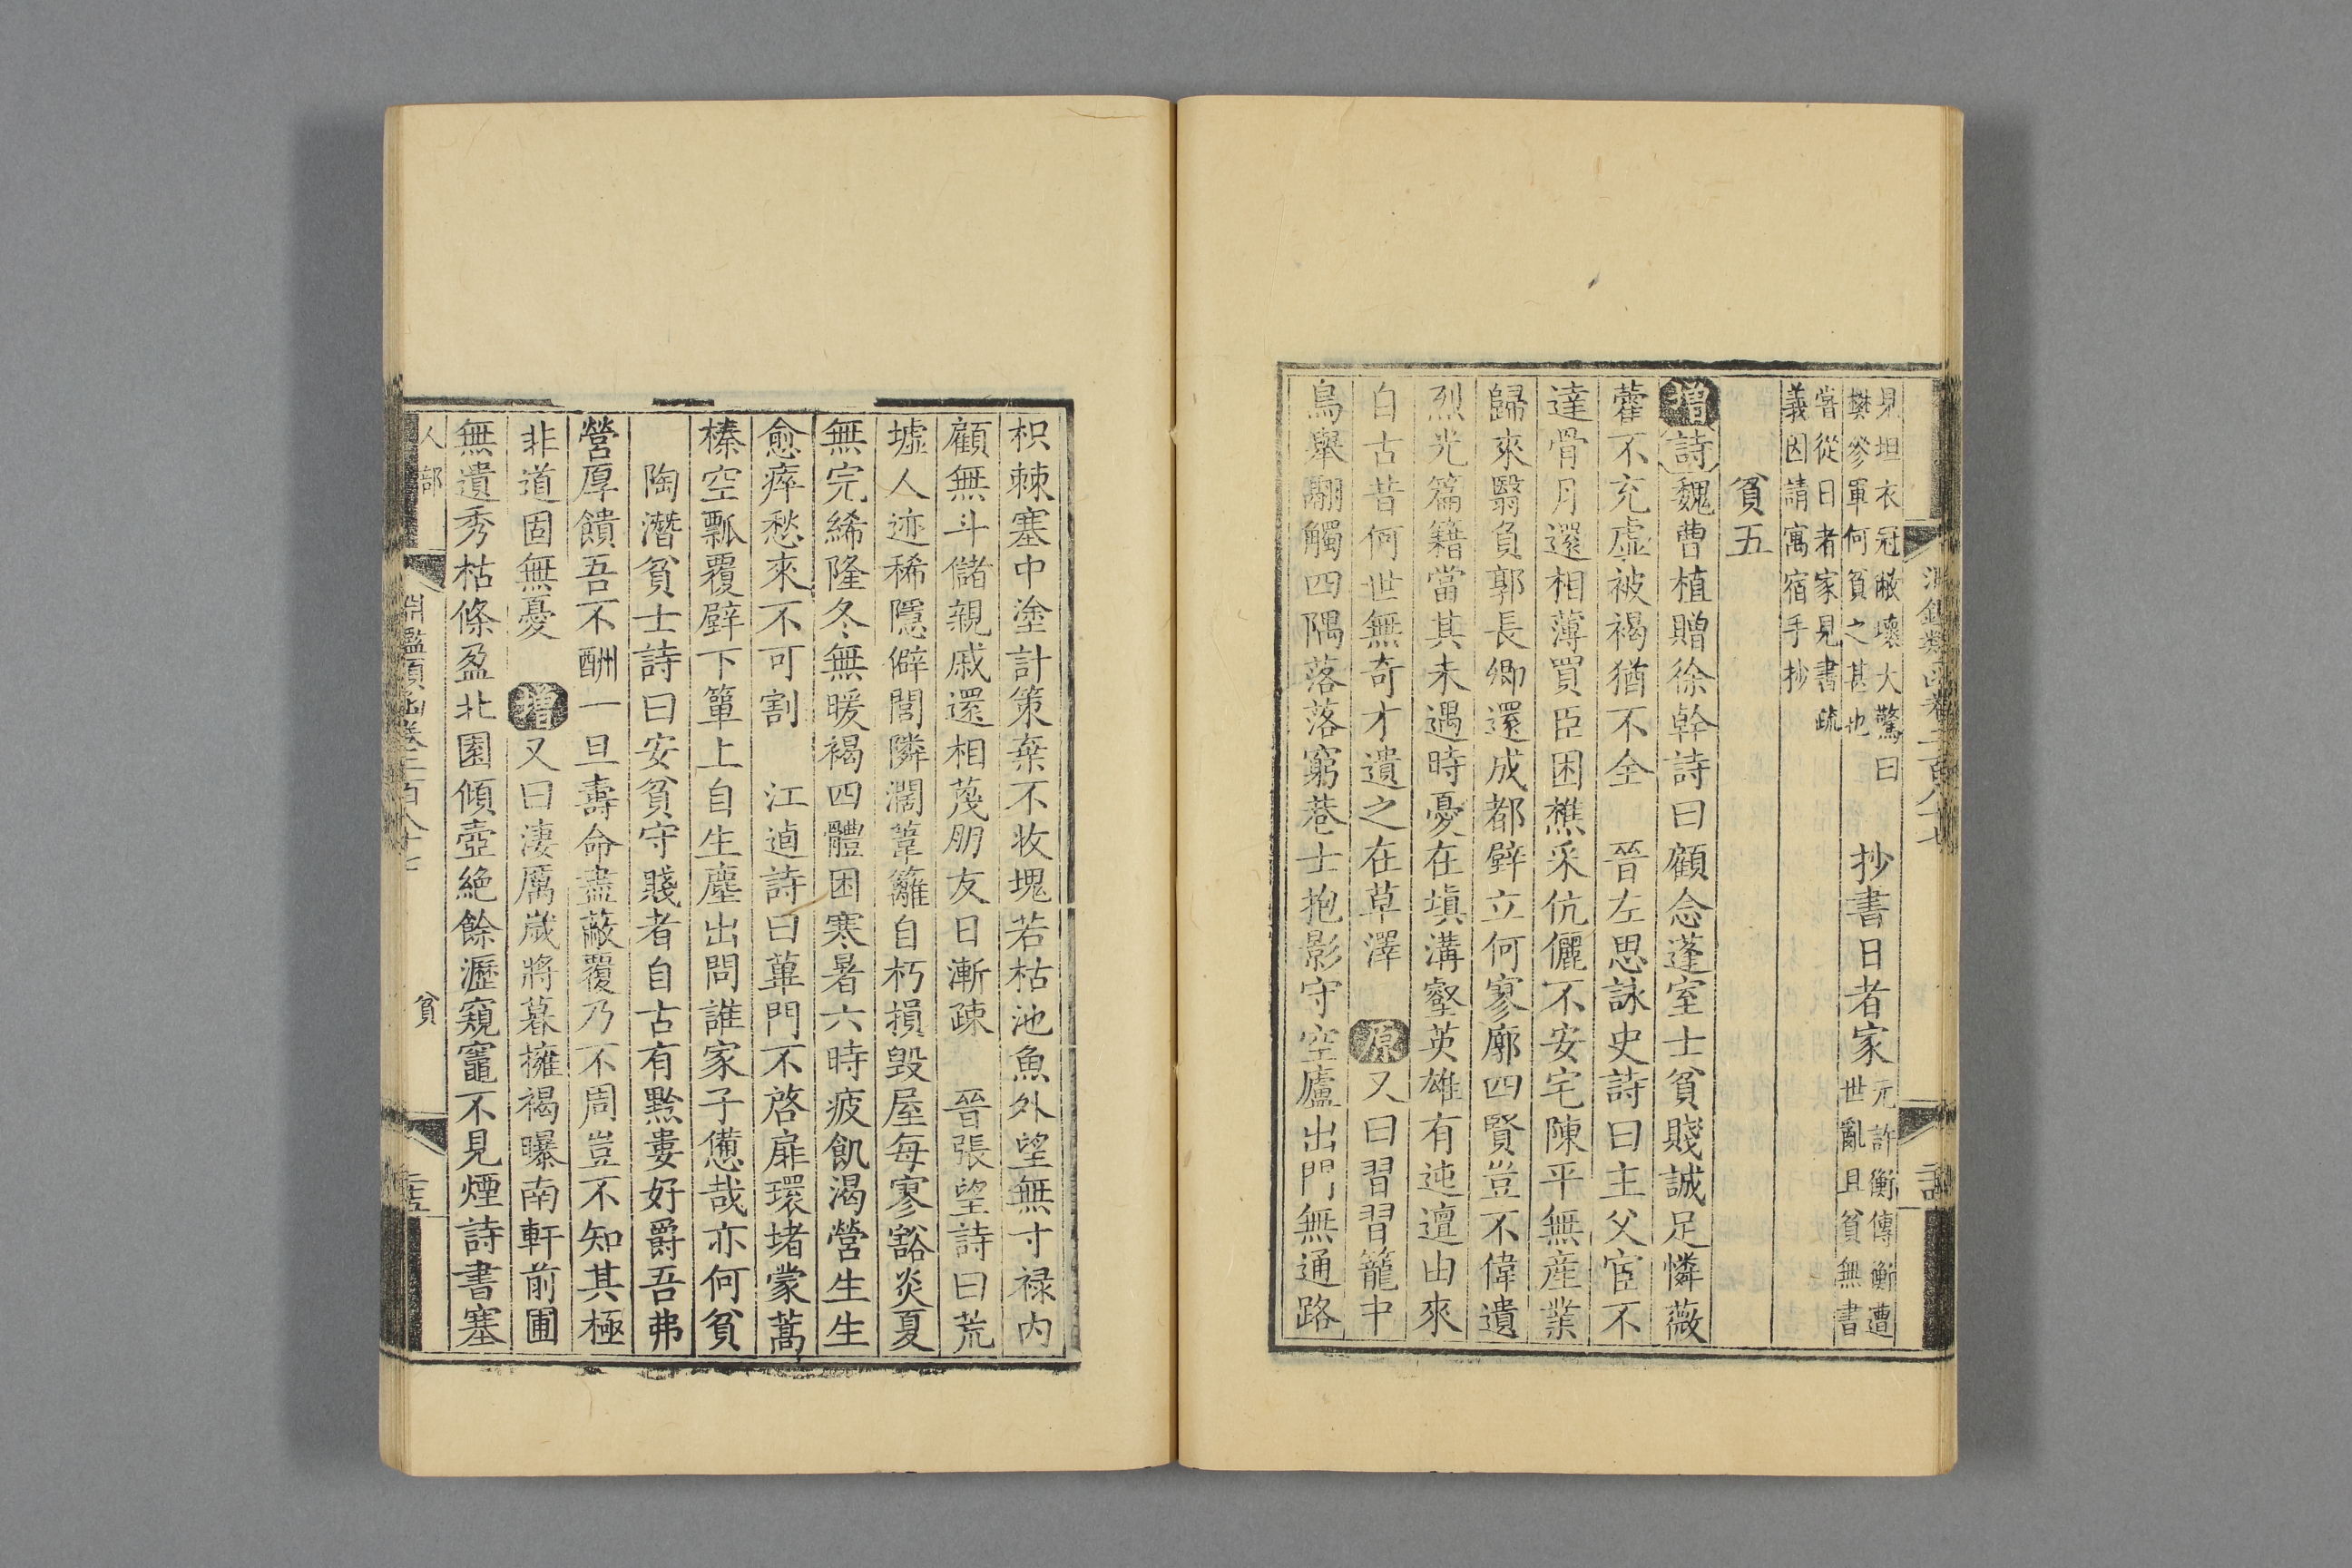 見坦衣冠敝壞大驚曰
樊參軍何貧之甚也
抄書日者家
元許衡傳衡遭
世亂且貧無書
嘗從日者家見書疏
義因請寓宿手抄
貧五
增詩魏曹植贈徐幹詩曰顧念蓬室士貧賤誠足憐薇
藿不充虛被褐猶不全 晉左思詠史詩曰主父宦不
達骨月還相薄買臣困樵采伉儷不安宅陳平無產業
歸來翳負郭長卿還成都壁立何寥廓四賢豈不偉遺
烈光篇籍當其未遇時憂在塡溝壑英雄有迍邅由來
自古昔何世無奇才遺之在草澤 原又曰習習籠中
鳥舉翮觸四隅落落窮巷士抱影守空廬出門無通路
枳棘塞中塗計策棄不收塊若枯池魚外望無寸祿内
顧無斗儲親戚還相蔑朋友日漸疎 晉張望詩曰荒
墟人迹稀隱僻閭隣濶葦籬自朽損毀屋每寥豁炎夏
無完絺隆冬無暖褐四體困寒暑六時疲飢渴營生生
愈瘁愁來不可割 江逌詩曰蓽門不啓扉環堵蒙蒿
榛空瓢覆壁下簞上自生塵出問誰家子憊哉亦何貧
陶潛貧士詩曰安貧守賤者自古有黔婁好爵吾弗
營厚饋吾不酬一旦壽命盡蔽覆乃不周豈不知其極
非道固無憂 增又曰淒厲嵗將暮擁褐曝南軒前圃
無遺秀枯條盈北園傾壺絶餘瀝窺竈不見煙詩書塞
人部
淵鑑類函卷二百八十七
貧